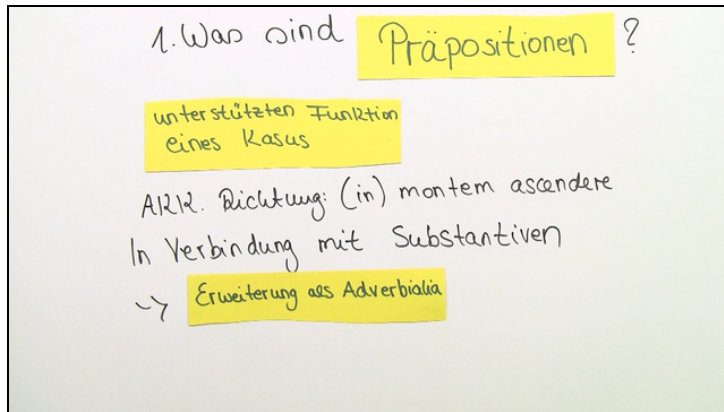 1. Was sind Präpositionen ?
unterstützten Funktion
eines Kasus
AKK. Richtung: (in) montem ascendere
In Verbindung mit Substantiven
↪ Erweiterung als Adverbialia